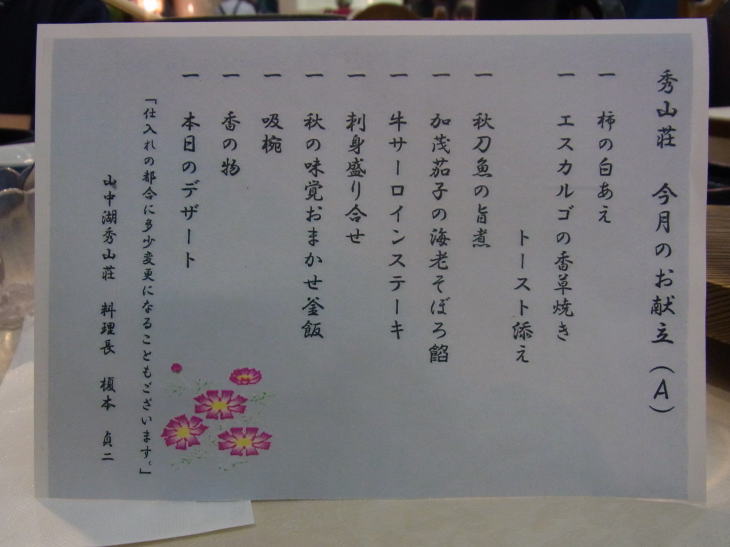 秀山荘 今月のお献立(A)
一 柿の白あえ
一 エスカルゴの香草焼き
トースト添え
一 秋刀魚の旨煮
一 加茂茄子の海老そぼろ餡
一 牛サーロインステーキ
一 刺身盛り合せ
一 秋の味覚おまかせ釜飯
一 吸椀
一 香の物
一 本日のデザート
「仕入れの都合に多少変更になることもございます。」
山中湖秀山荘 料理長 榎本 貞二